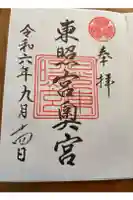 奉拝
東照宮奥宮
令和六年九月十四日